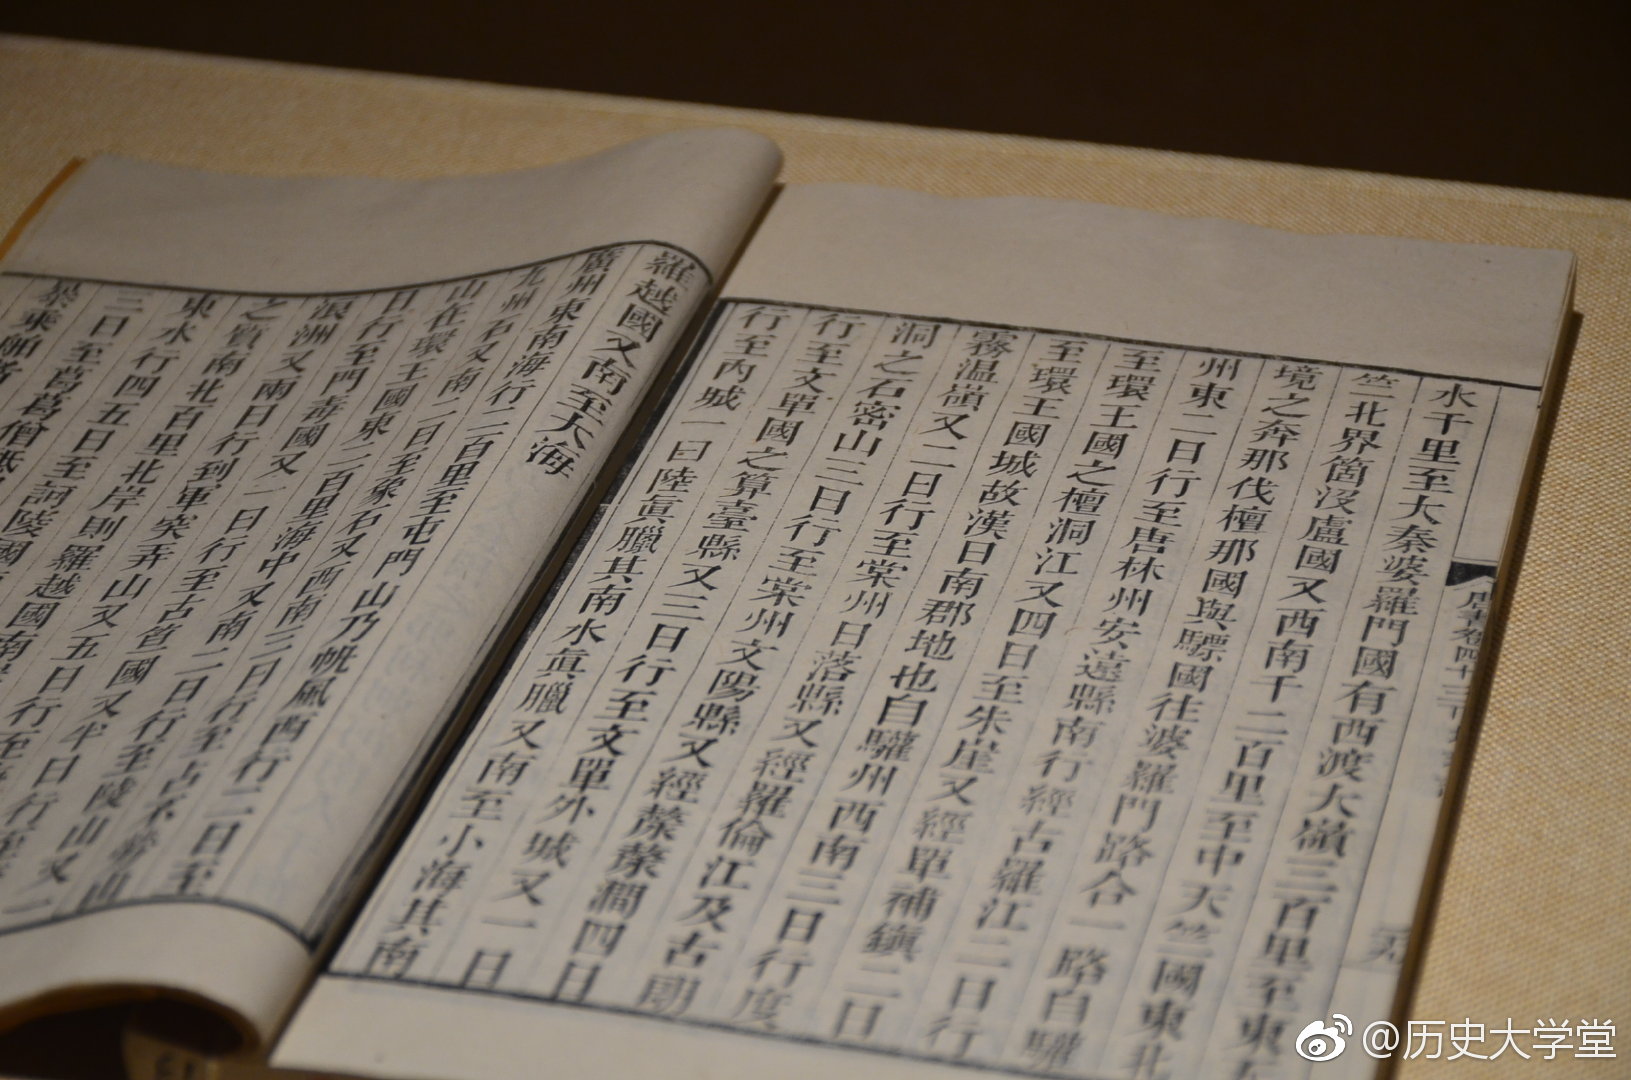 水千里至大秦婆羅門國有西渡大嶺三百里至東
竺北界箇沒盧國又西南千二百里至中天竺國東北
境之奔那伐檀那國與驃國往婆羅門路合一路自驩
州東二日行至唐林州安遠縣南行經古羅江二日行
至環王國之檀洞江又四日至朱崖又經單補鎮二日
至環王國城故漢日南郡地也自驩州西南三日行度
霧温嶺又二日行至棠州日落縣又經羅倫江及古朗
洞之石密山三日行至棠州文陽縣又經漦漦澗四日
行至文單國之算臺縣又三日行至文單外城又一日
行至內城一曰陸眞臘其南水眞臘又南至小海其南
羅越國又南至大海
廣州東南海行二百里至屯門山乃帆風西行二日至
九州石又南二日至象石又西南三日行至占不勞山
山在環王國東二百里海中又南二日行至陵山又一
日行至門毒國又一日行至古笪國又半日行至
浪洲又兩日行到軍突弄山又五日行至
之質南北百里北岸則羅越國南
東水行四五日至訶陵國
三日至葛葛僧祇
唐書卷四十三
@历史大学堂